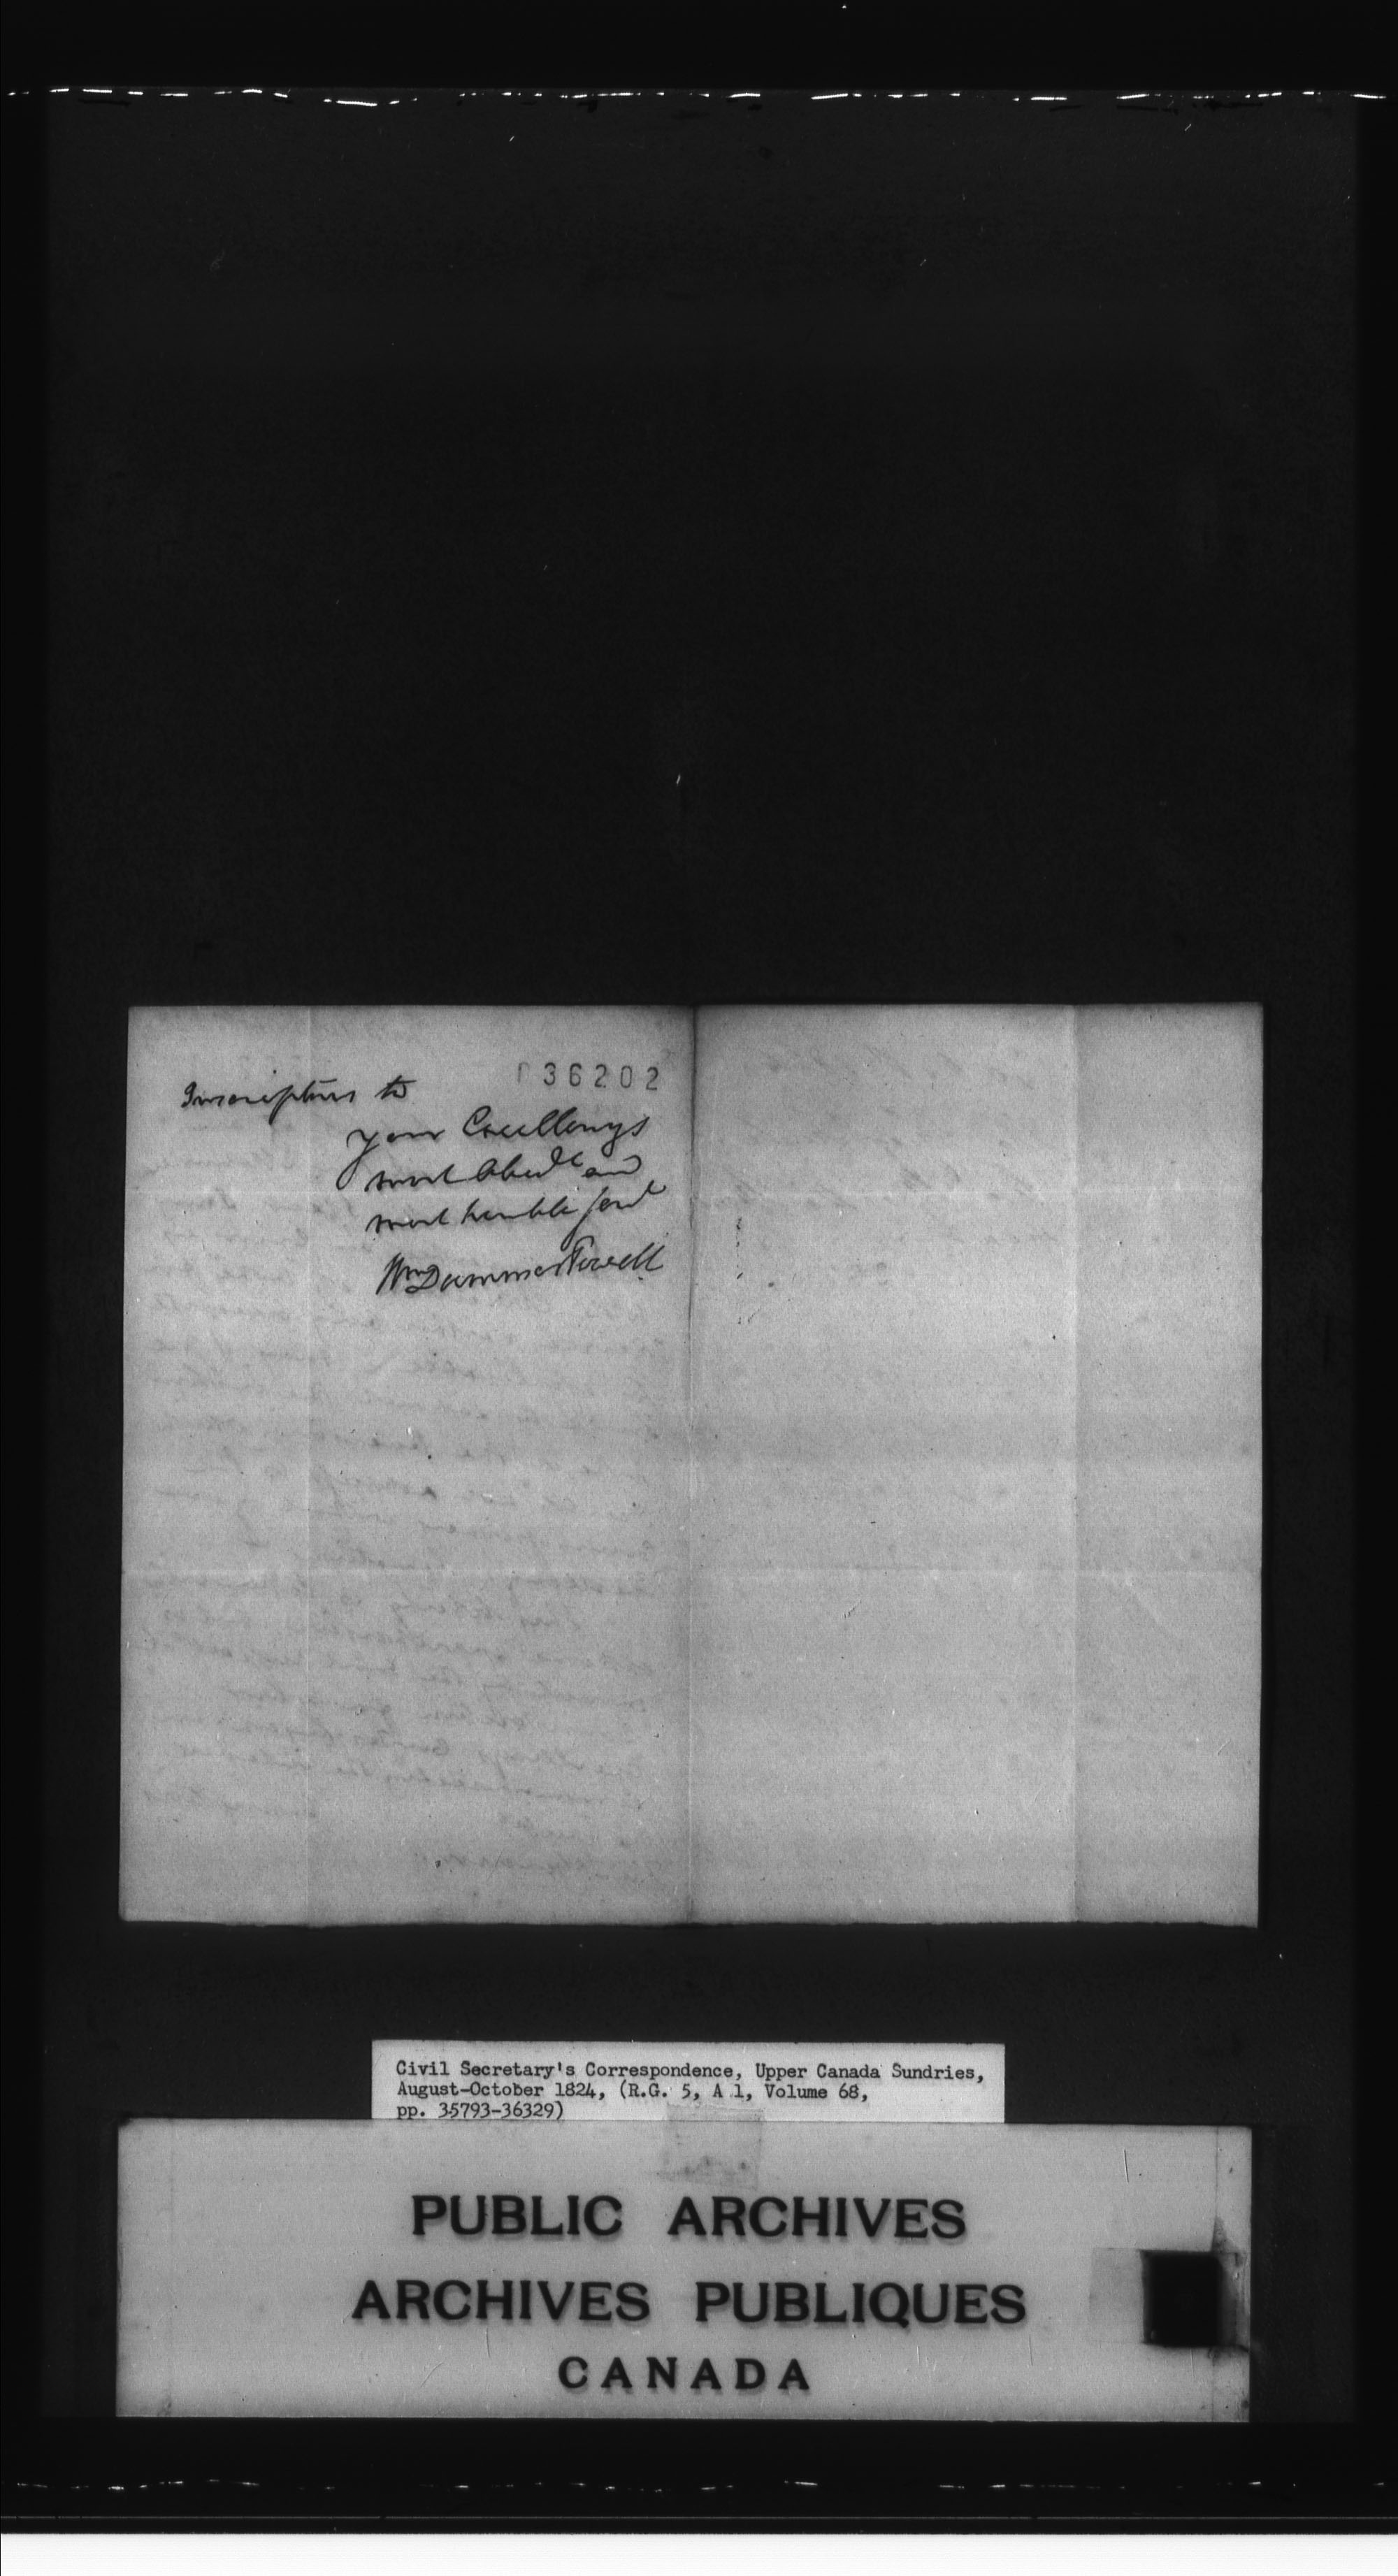 036202
Inscriptions to
your Excellencys
most Obedt and
most humble Servt
Wm Dummer Powell
Civil Secretary's Correspondence, Upper Canada Sundries,
August-October 1824, (R.G. 5, A 1, Volume 68,
pp. 35793-36329)
PUBLIC ARCHIVES
ARCHIVES PUBLIQUES
CANADA